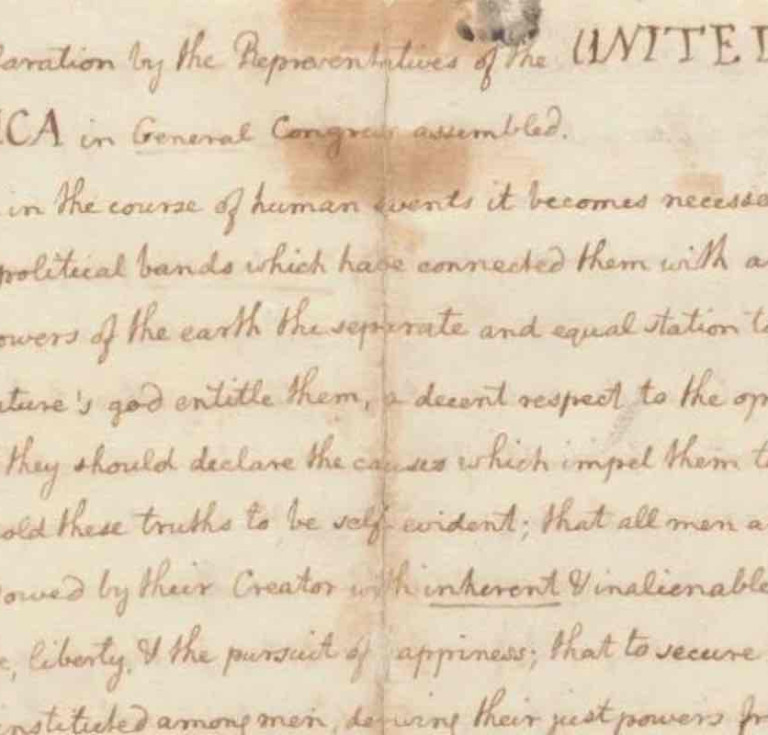 laration by the Representatives of the UNITED
ICA in General Congress assembled.
in the course of human events it becomes necessa
political bands which have connected them with a
owers of the earth the separate and equal station to
ature's god entitle them, a decent respect to the op
they should declare the causes which impel them to
old these truths to be self-evident; that all men a
dowed by their Creator with inherent & inalienable
e, liberty, & the pursuit of appiness; that to secure
instituted among men, deriving their just powers fr